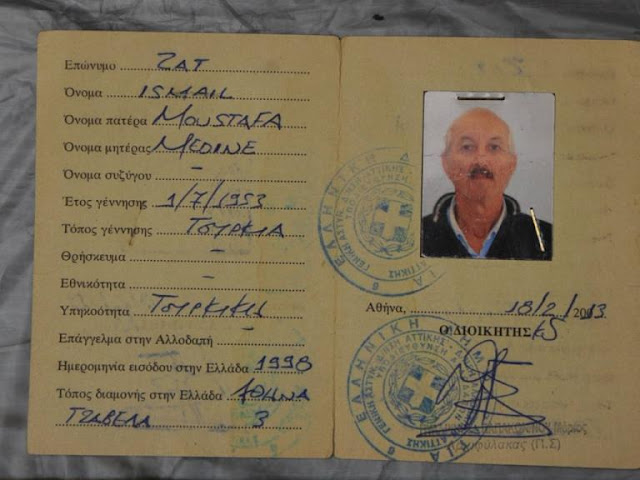 Επώνυμο ZAT
Όνομα ISMAIL
Όνομα πατέρα MOUSTAFA
Όνομα μητέρας MEDINE
Όνομα συζύγου —
Έτος γέννησης 1/7/1953
Τόπος γέννησης ΤΟΥΡΚΙΑ
Θρήσκευμα —
Εθνικότητα —
Υπηκοότητα ΤΟΥΡΚΙΚΗ
Επάγγελμα στην Αλλοδαπή —
Ημερομηνία εισόδου στην Ελλάδα 1998
Τόπος διαμονής στην Ελλάδα ΑΘΗΝΑ
ΤΖΑΒΕΛΑ 3
Αθήνα, 18/2/2013
Ο ΔΙΟΙΚΗΤΗΣ
ΕΛΛΗΝΙΚΗ
ΕΛΛΗΝΙΚΗ
(Π.Σ)